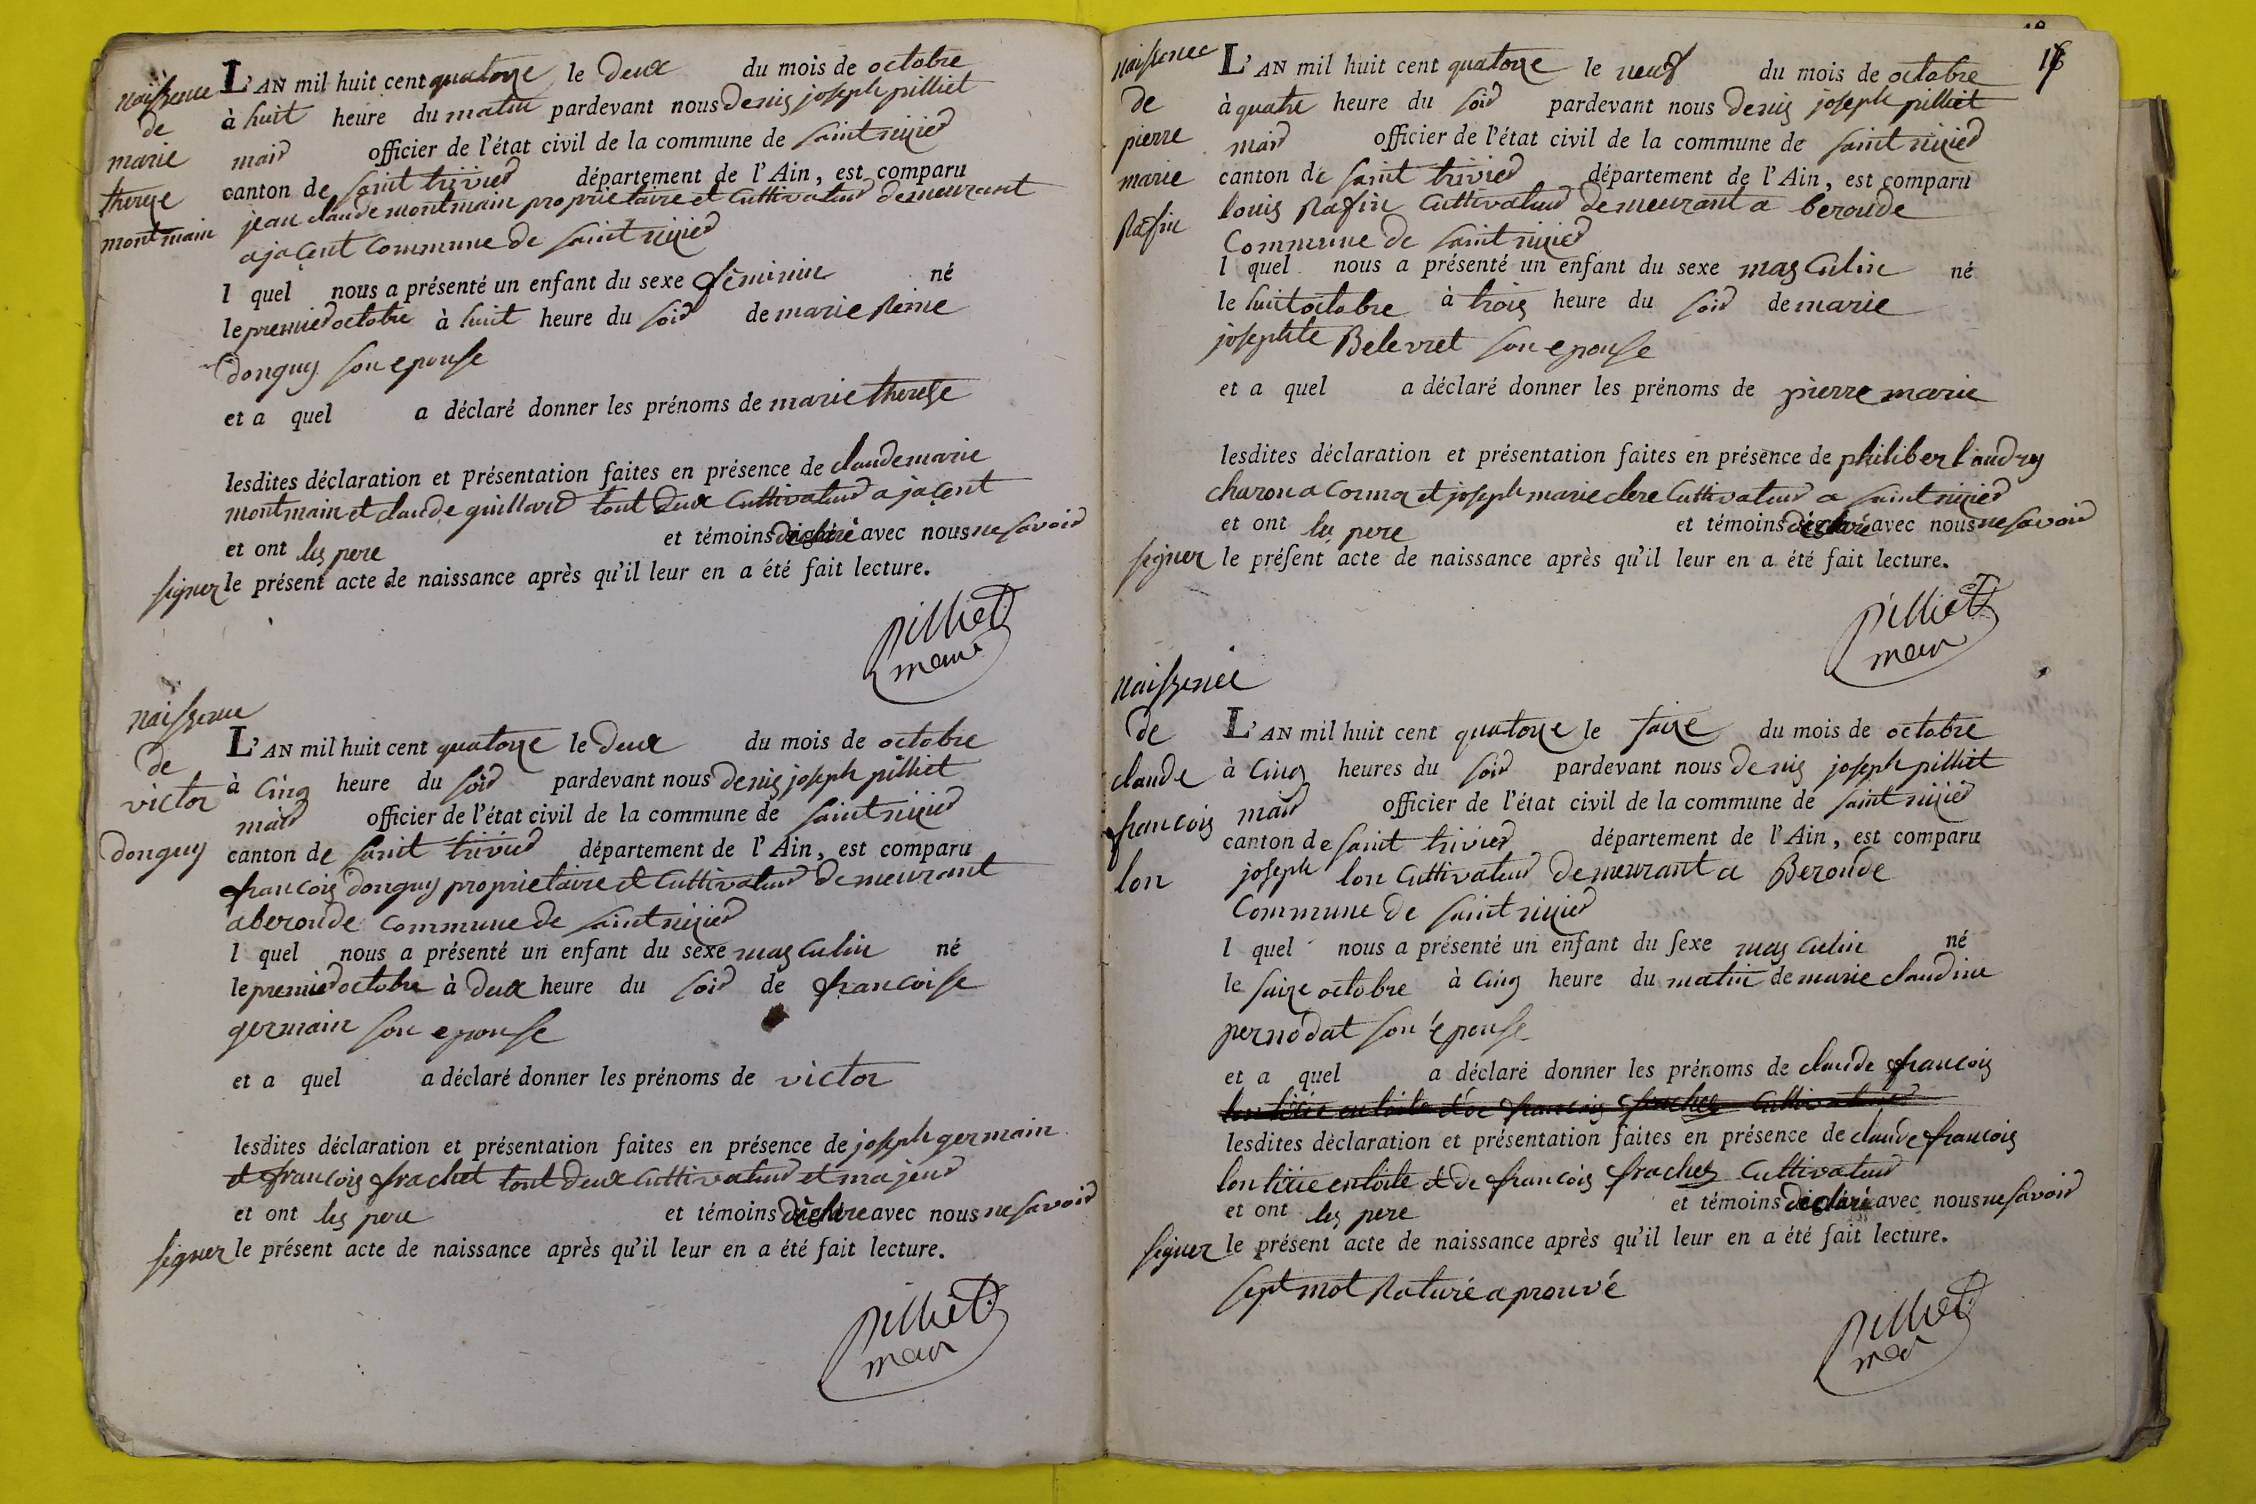 naissence
de
marie
therese
montmain
L'AN mil huit cent quatorze le deux du mois de octobre
à huit heure du matin pardevant nous denis joseph pilliet
mair officier de l'état civil de la commune de saint nizier
canton de saint trivier département de l'Ain, est comparu
jean claude montmain proprietaire et cultivateur demeurant
a jaçent commune de saint nizier
l quel nous a présenté un enfant du sexe féminin né
le premier octobre à huit heure du soir de marie Reine
donguy son epouse
et a quel a déclaré donner les prénoms de marie therese
lesdites déclaration et présentation faites en présence de claude marie
montmain et claude guillard tout deux cultivateur a jaçent
et ont les pere et témoins déclaré avec nous ne savoir
signer le présent acte de naissance après qu'il leur en a été fait lecture.
pilliet
mair
naissence
de
victor
donguy
L'AN mil huit cent quatorze le deux du mois de octobre
à cinq heure du soir pardevant nous denis joseph pilliet
mair officier de l'état civil de la commune de saint nizier
canton de saint trivier département de l'Ain, est comparu
francois donguy proprietaire et cultivateur demeurant
a beroude commune de saint nizier
l quel nous a présenté un enfant du sexe masculin né
le premier octobre à deux heure du soir de francoise
germain son epouse
et a quel a déclaré donner les prénoms de victor
lesdites déclaration et présentation faites en présence de joseph germain
et francois frachet tout deux cultivateur et majeur
et ont les pere et témoins déclaré avec nous ne savoir
signer le présent acte de naissance après qu'il leur en a été fait lecture.
pilliet
mair
naissence
de
pierre
marie
Rafin
L'AN mil huit cent quatorze le neuf du mois de octobre
à quatre heure du soir pardevant nous denis joseph pilliet
mair officier de l'état civil de la commune de saint nizier
canton de saint trivier département de l'Ain, est comparu
louis Rafin cultivateur demeurant a beroude
commune de saint nizier
l quel nous a présenté un enfant du sexe masculin né
le huit octobre à trois heure du soir de marie
josephte Belevret son epouse
et a quel a déclaré donner les prénoms de pierre marie
lesdites déclaration et présentation faites en présence de philibert audry
charon a cormoz et joseph marie clere cultivateur a saint nizier
et ont les pere et témoins déclaré avec nous ne savoir
signer le présent acte de naissance après qu'il leur en a été fait lecture.
pilliet
mair
naissence
de
claude
francois
lon
L'AN mil huit cent quatorze le saize du mois de octobre
à cinq heures du soir pardevant nous denis joseph pilliet
mair officier de l'état civil de la commune de saint nizier
canton de saint trivier département de l'Ain, est comparu
joseph lon cultivateur demeurant a Beroude
commune de saint nizier
l quel nous a présenté un enfant du sexe masculin né
le saize octobre à cinq heure du matin de marie claudine
pernodat son épouse
et a quel a déclaré donner les prénoms de claude francois
lesdites déclaration et présentation faites en présence de claude francois
lon titie en toile et de francois frachez cultivateur
et ont les pere et témoins déclaré avec nous ne savoir
signer le présent acte de naissance après qu'il leur en a été fait lecture.
sept mot Raturé aprouvé
pilliet
mair